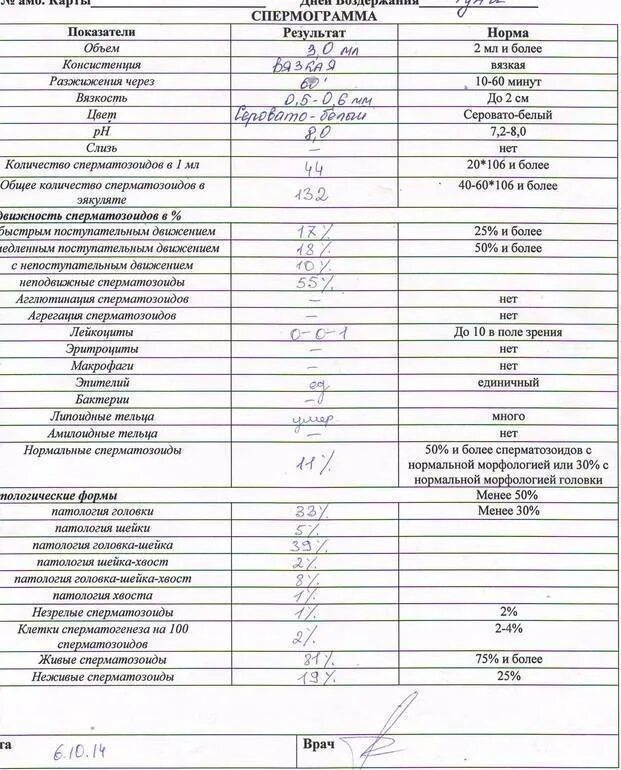 № амб. Карты Дней Воздержания
СПЕРМОГРАММА
Показатели Результат Норма
Объем 3,0 мл 2 мл и более
Консистенция вязкая вязкая
Разжижения через 60' 10-60 минут
Вязкость 0,5-0,6 мм До 2 см
Цвет Серовато-белый Серовато-белый
pH 8,0 7,2-8,0
Слизь – нет
Количество сперматозоидов в 1 мл 44 20*106 и более
Общее количество сперматозоидов в 40-60*106 и более
эякуляте 132
движность сперматозоидов в %
быстрым поступательным движением 17% 25% и более
медленным поступательным движением 18% 50% и более
с непоступательным движением 10%
неподвижные сперматозоиды 55%
Агглютинация сперматозоидов – нет
Агрегация сперматозоидов – нет
Лейкоциты 0-0-1 До 10 в поле зрения
Эритроциты – нет
Макрофаги – нет
Эпителий ед единичный
Бактерии –
Липоидные тельца умер. много
Амилоидные тельца – нет
Нормальные сперматозоиды 11% 50% и более сперматозоидов с
нормальной морфологией или 30% с
нормальной морфологией головки
тологические формы Менее 50%
патология головки 33% Менее 30%
патология шейки 5%
патология головка-шейка 39%
патология шейка-хвост 2%
патология головка-шейка-хвост 8%
патология хвоста 1%
Незрелые сперматозоиды 1% 2%
Клетки сперматогенеза на 100 2% 2-4%
сперматозоидов
Живые сперматозоиды 81% 75% и более
Неживые сперматозоиды 19% 25%
та 6.10.14 Врач